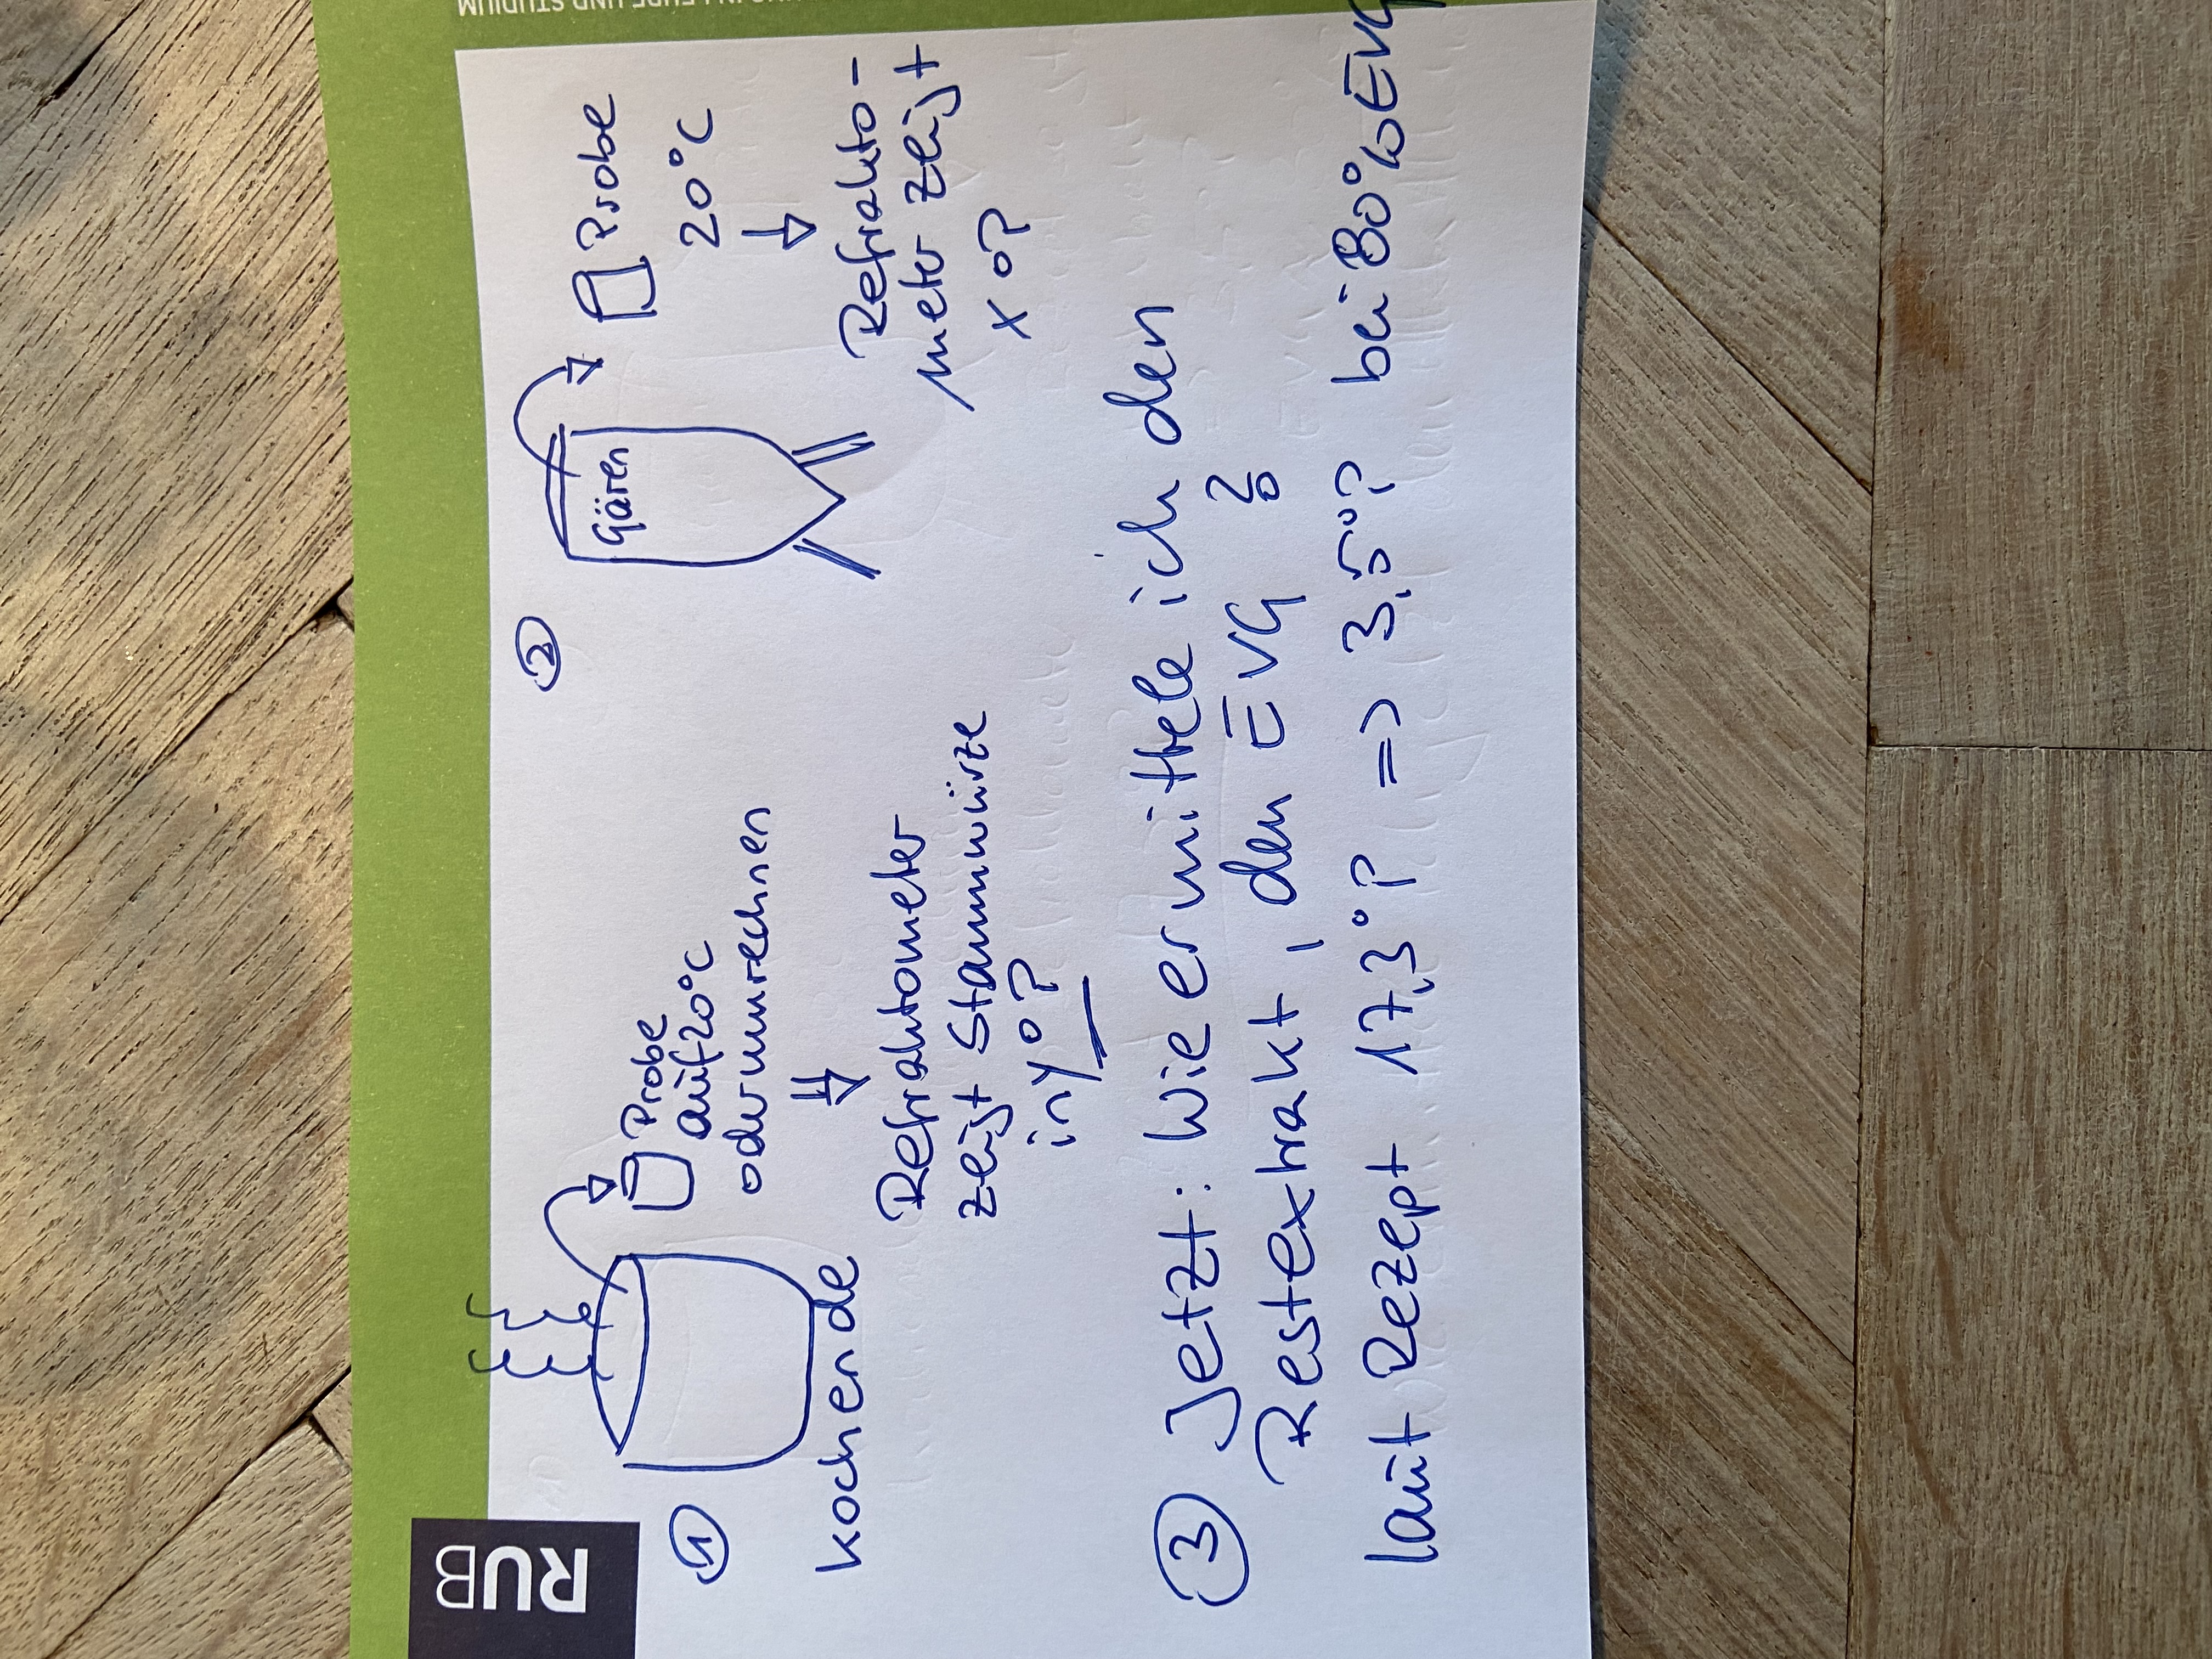 RUB
①
Probe
auf 20°C
oder umrechnen
Kochende
Refraktometer
zeigt Stammwürze
in y °P
②
Gären
Probe
20°C
Refrakto-
meter zeigt
x °P
③ Jetzt: Wie ermittele ich den
Restextrakt, den EVG?
laut Rezept 17,3°P => 3,5°P bei 80% EVG